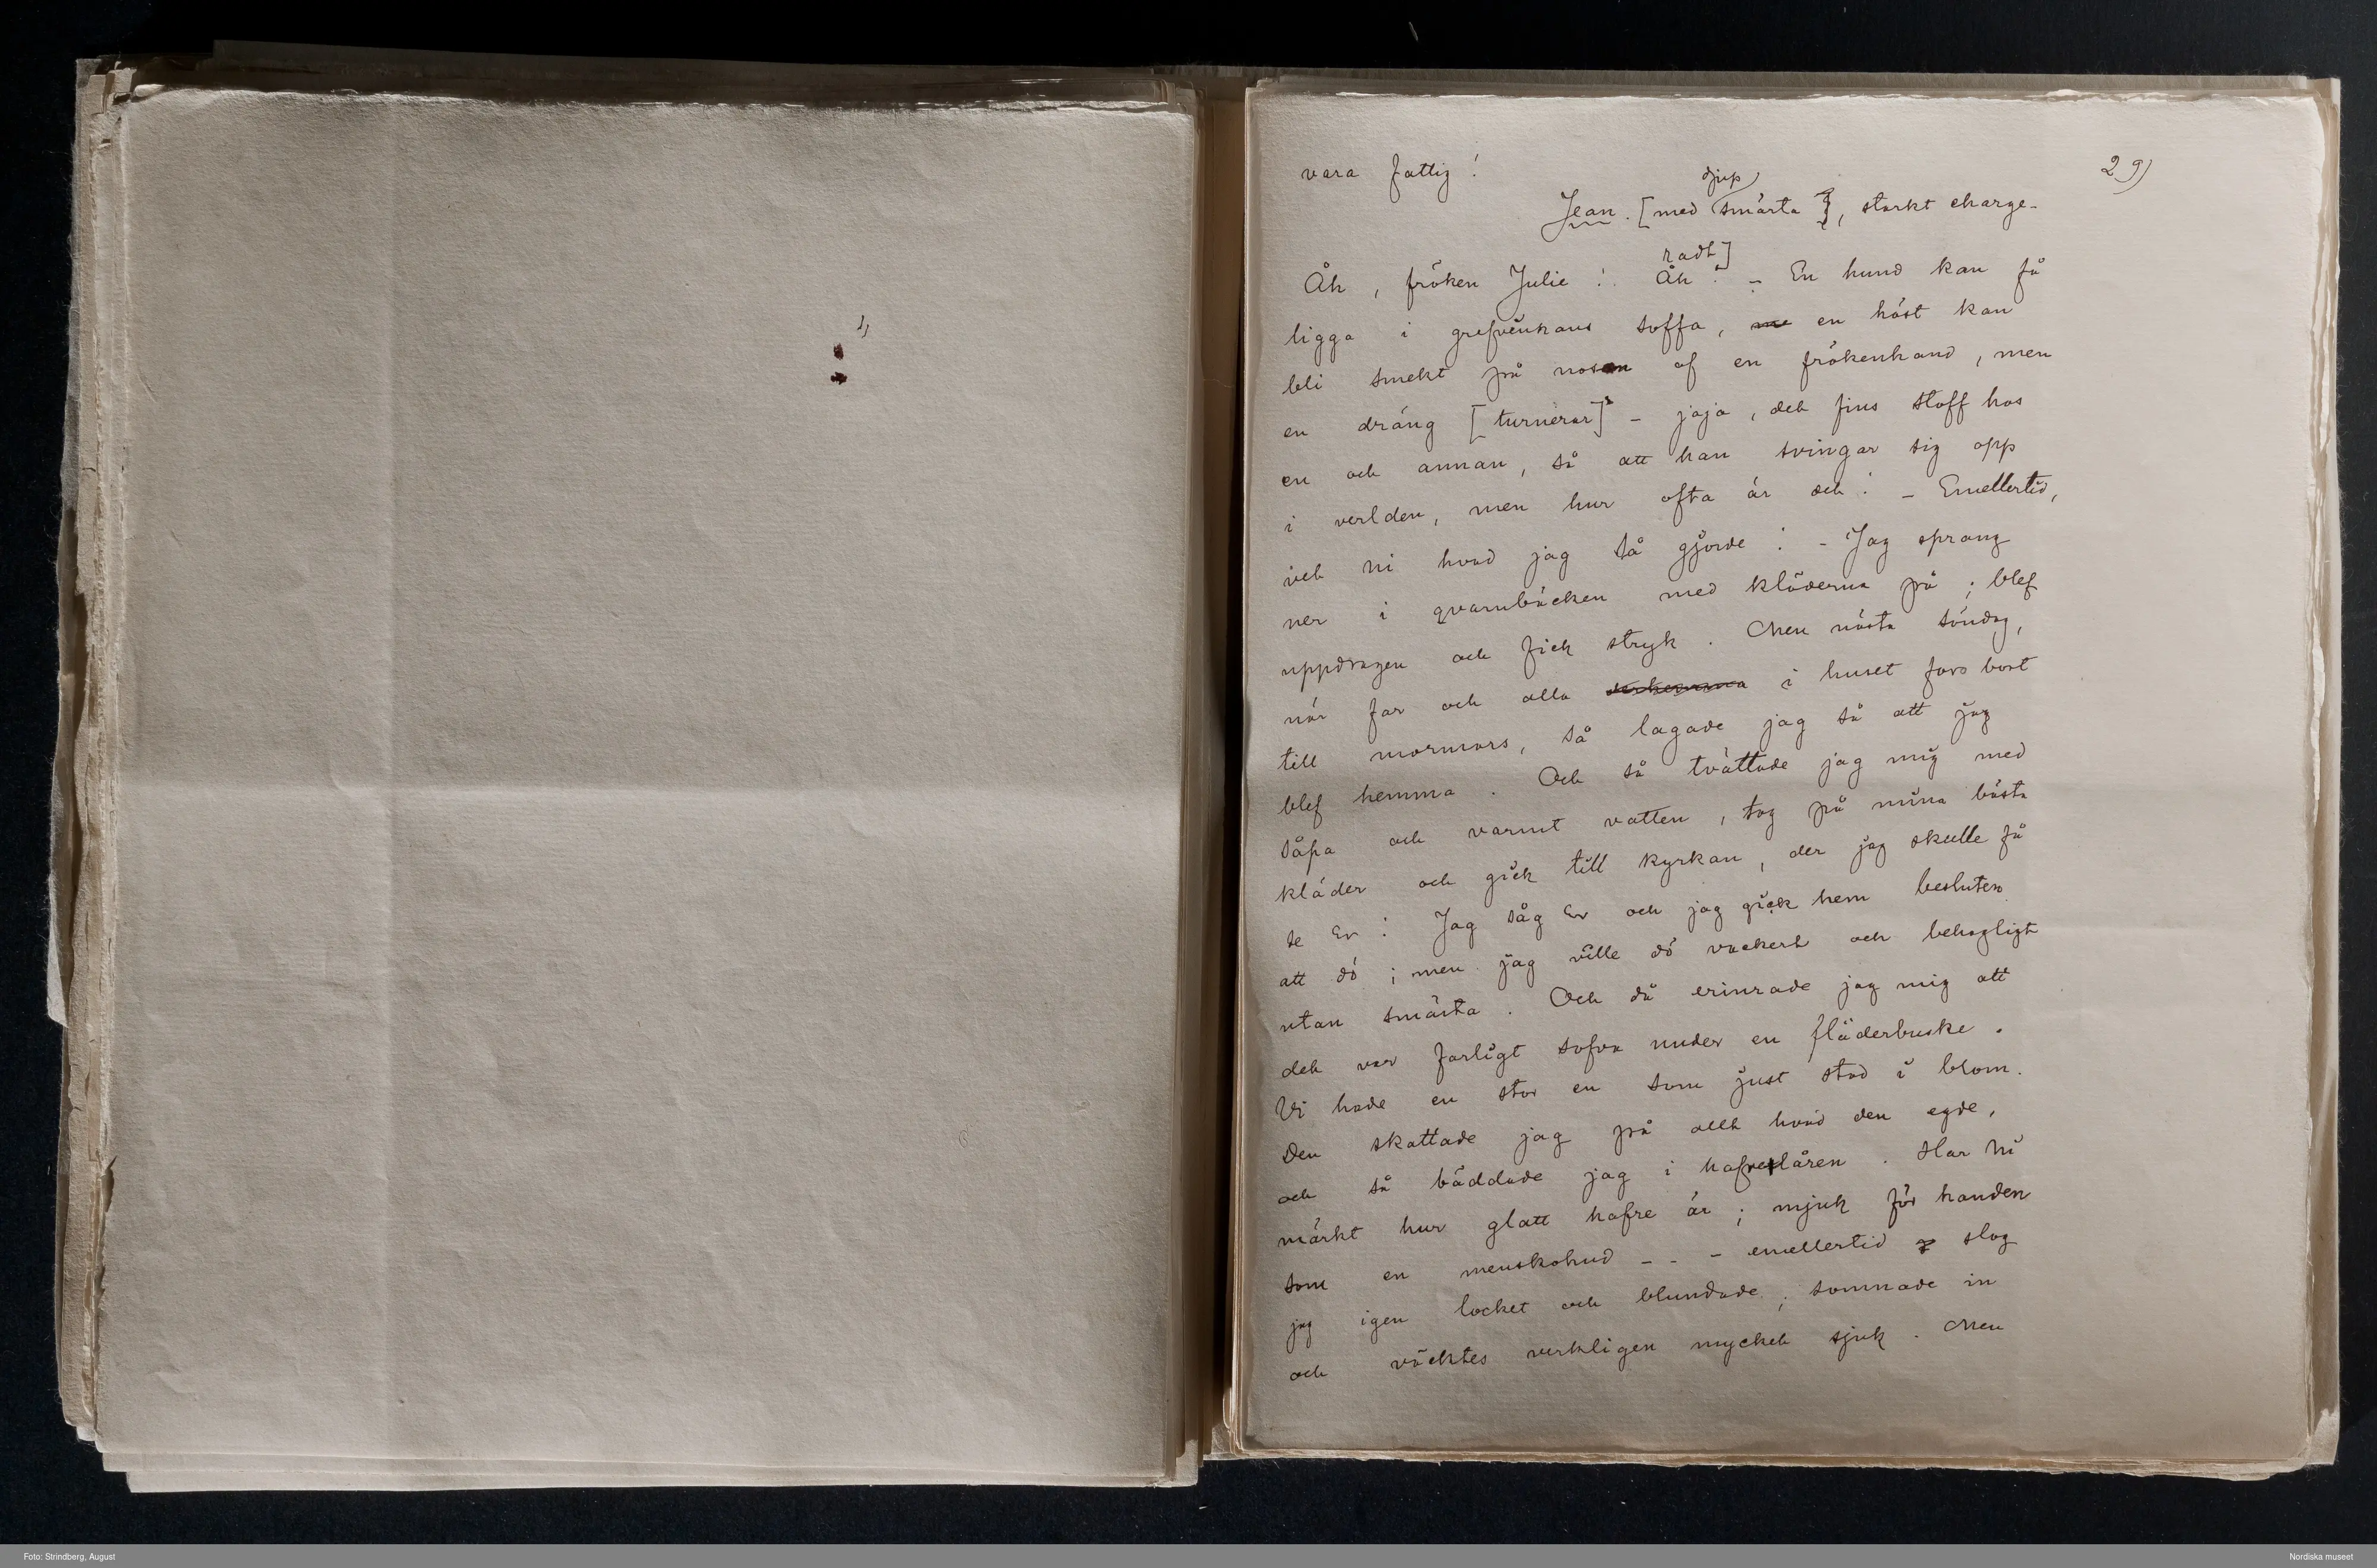 29)
vara fattig!
djup
Jean. [med smärta], starkt charge-
radt]
Åh, fröken Julie! Åh! – En hund kan få
ligga i grefvinnans soffa, en häst kan
bli smekt på nosen af en frökenhand, men
en dräng [turnerar] – jaja, det fins stoff hos
en och annan, så att han svingar sig opp
i verlden, men hur ofta är det! – Emellertid,
vet ni hvad jag så gjorde! – Jag sprang
ner i qvarnbäcken med kläderna på; blef
uppdragen och fick stryk. Men nästa söndag,
när far och alla i huset foro bort
till mormors, så lagade jag så att jag
blef hemma. Och så tvättade jag mig med
såpa och varmt vatten, tog på mina bästa
kläder och gick till kyrkan, der jag skulle få
se Er! Jag såg Er och jag gick hem besluten
att dö; men jag ville dö vackert och behagligt
utan smärta. Och då erinrade jag mig att
det var farligt sofva under en fläderbuske.
Vi hade en stor en som just stod i blom.
Den skattade jag på allt hvad den egde,
och så bäddade jag i hafrelåren. Har Ni
märkt hur glatt hafre är; mjuk för handen
som en menskohud – – – emellertid slog
jag igen locket och blundade; somnade in
och väcktes verkligen mycket sjuk. Men
Foto: Strindberg, August
Nordiska museet